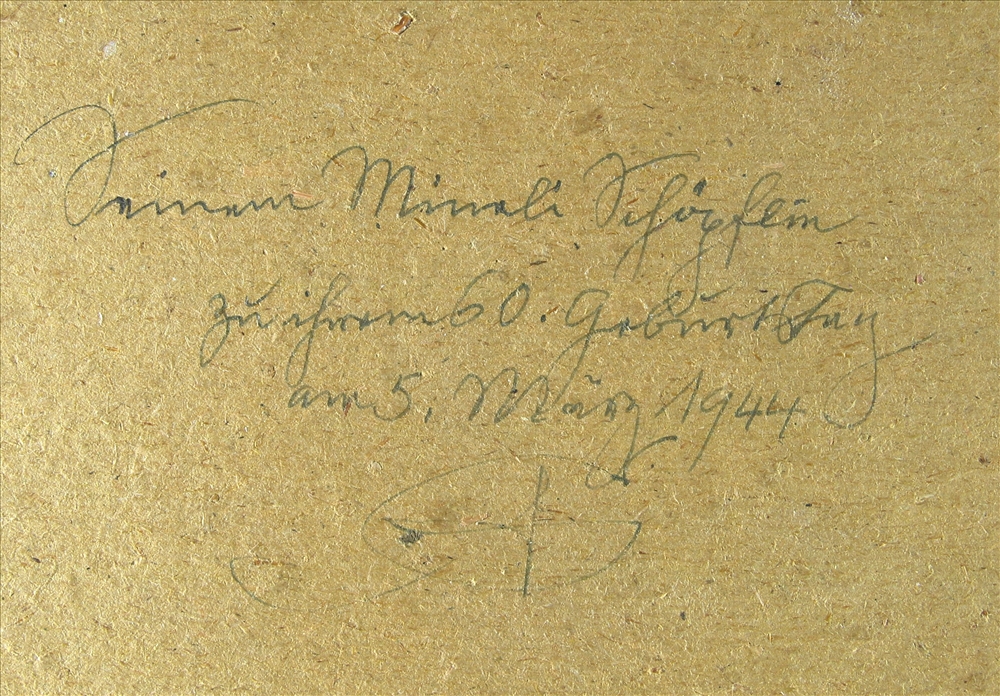 Seinem Mineli Schöpflin
zu ihrem 60. Geburtstag
am 5. März 1944